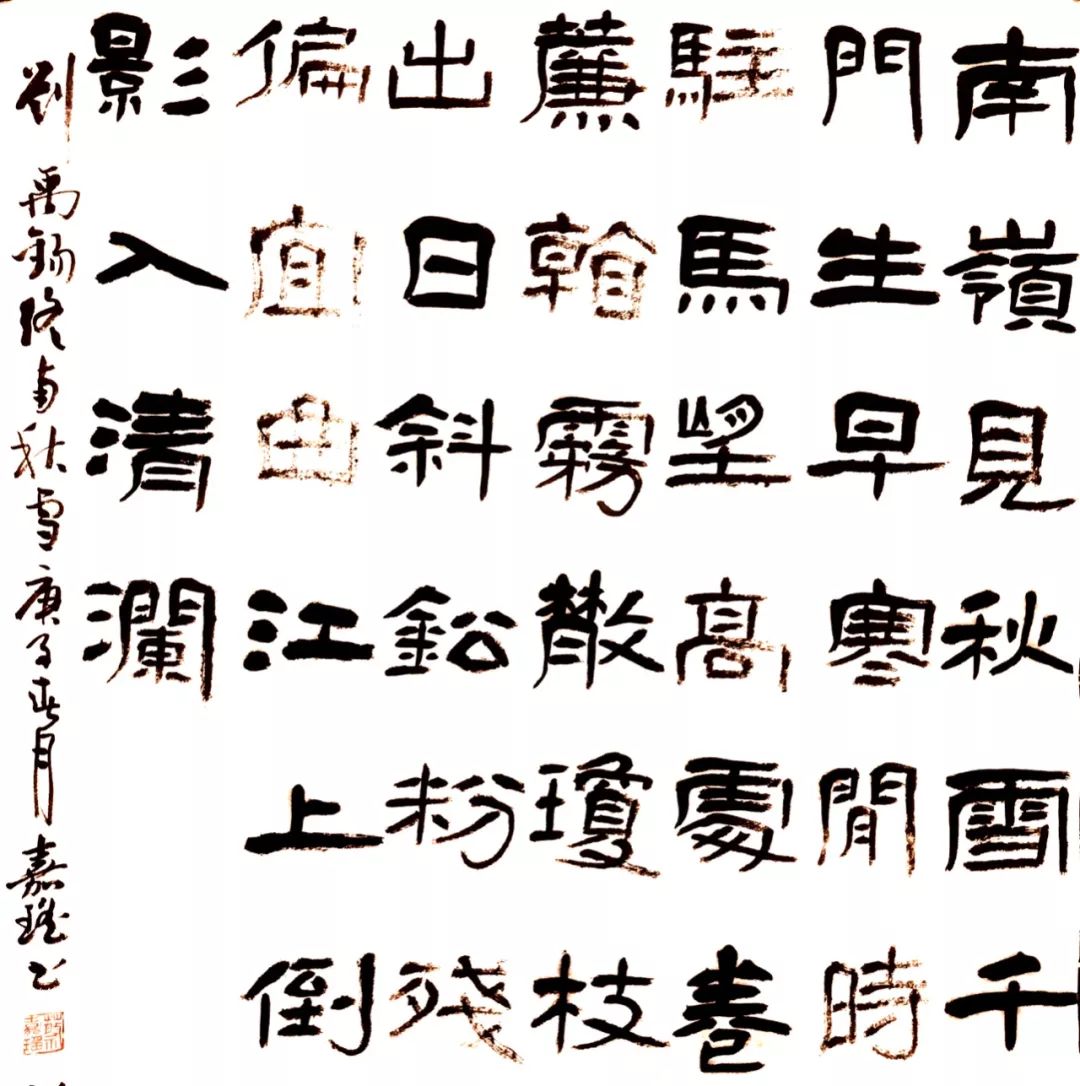 南嶺見秋雪千
門生早寒閒時
駐馬望高處卷
簾看霧散瓊枝
出日斜鈆粉殘
偏宜曲江上倒
影入清瀾
劉禹錫終南秋雪庚子春月嘉瑤书